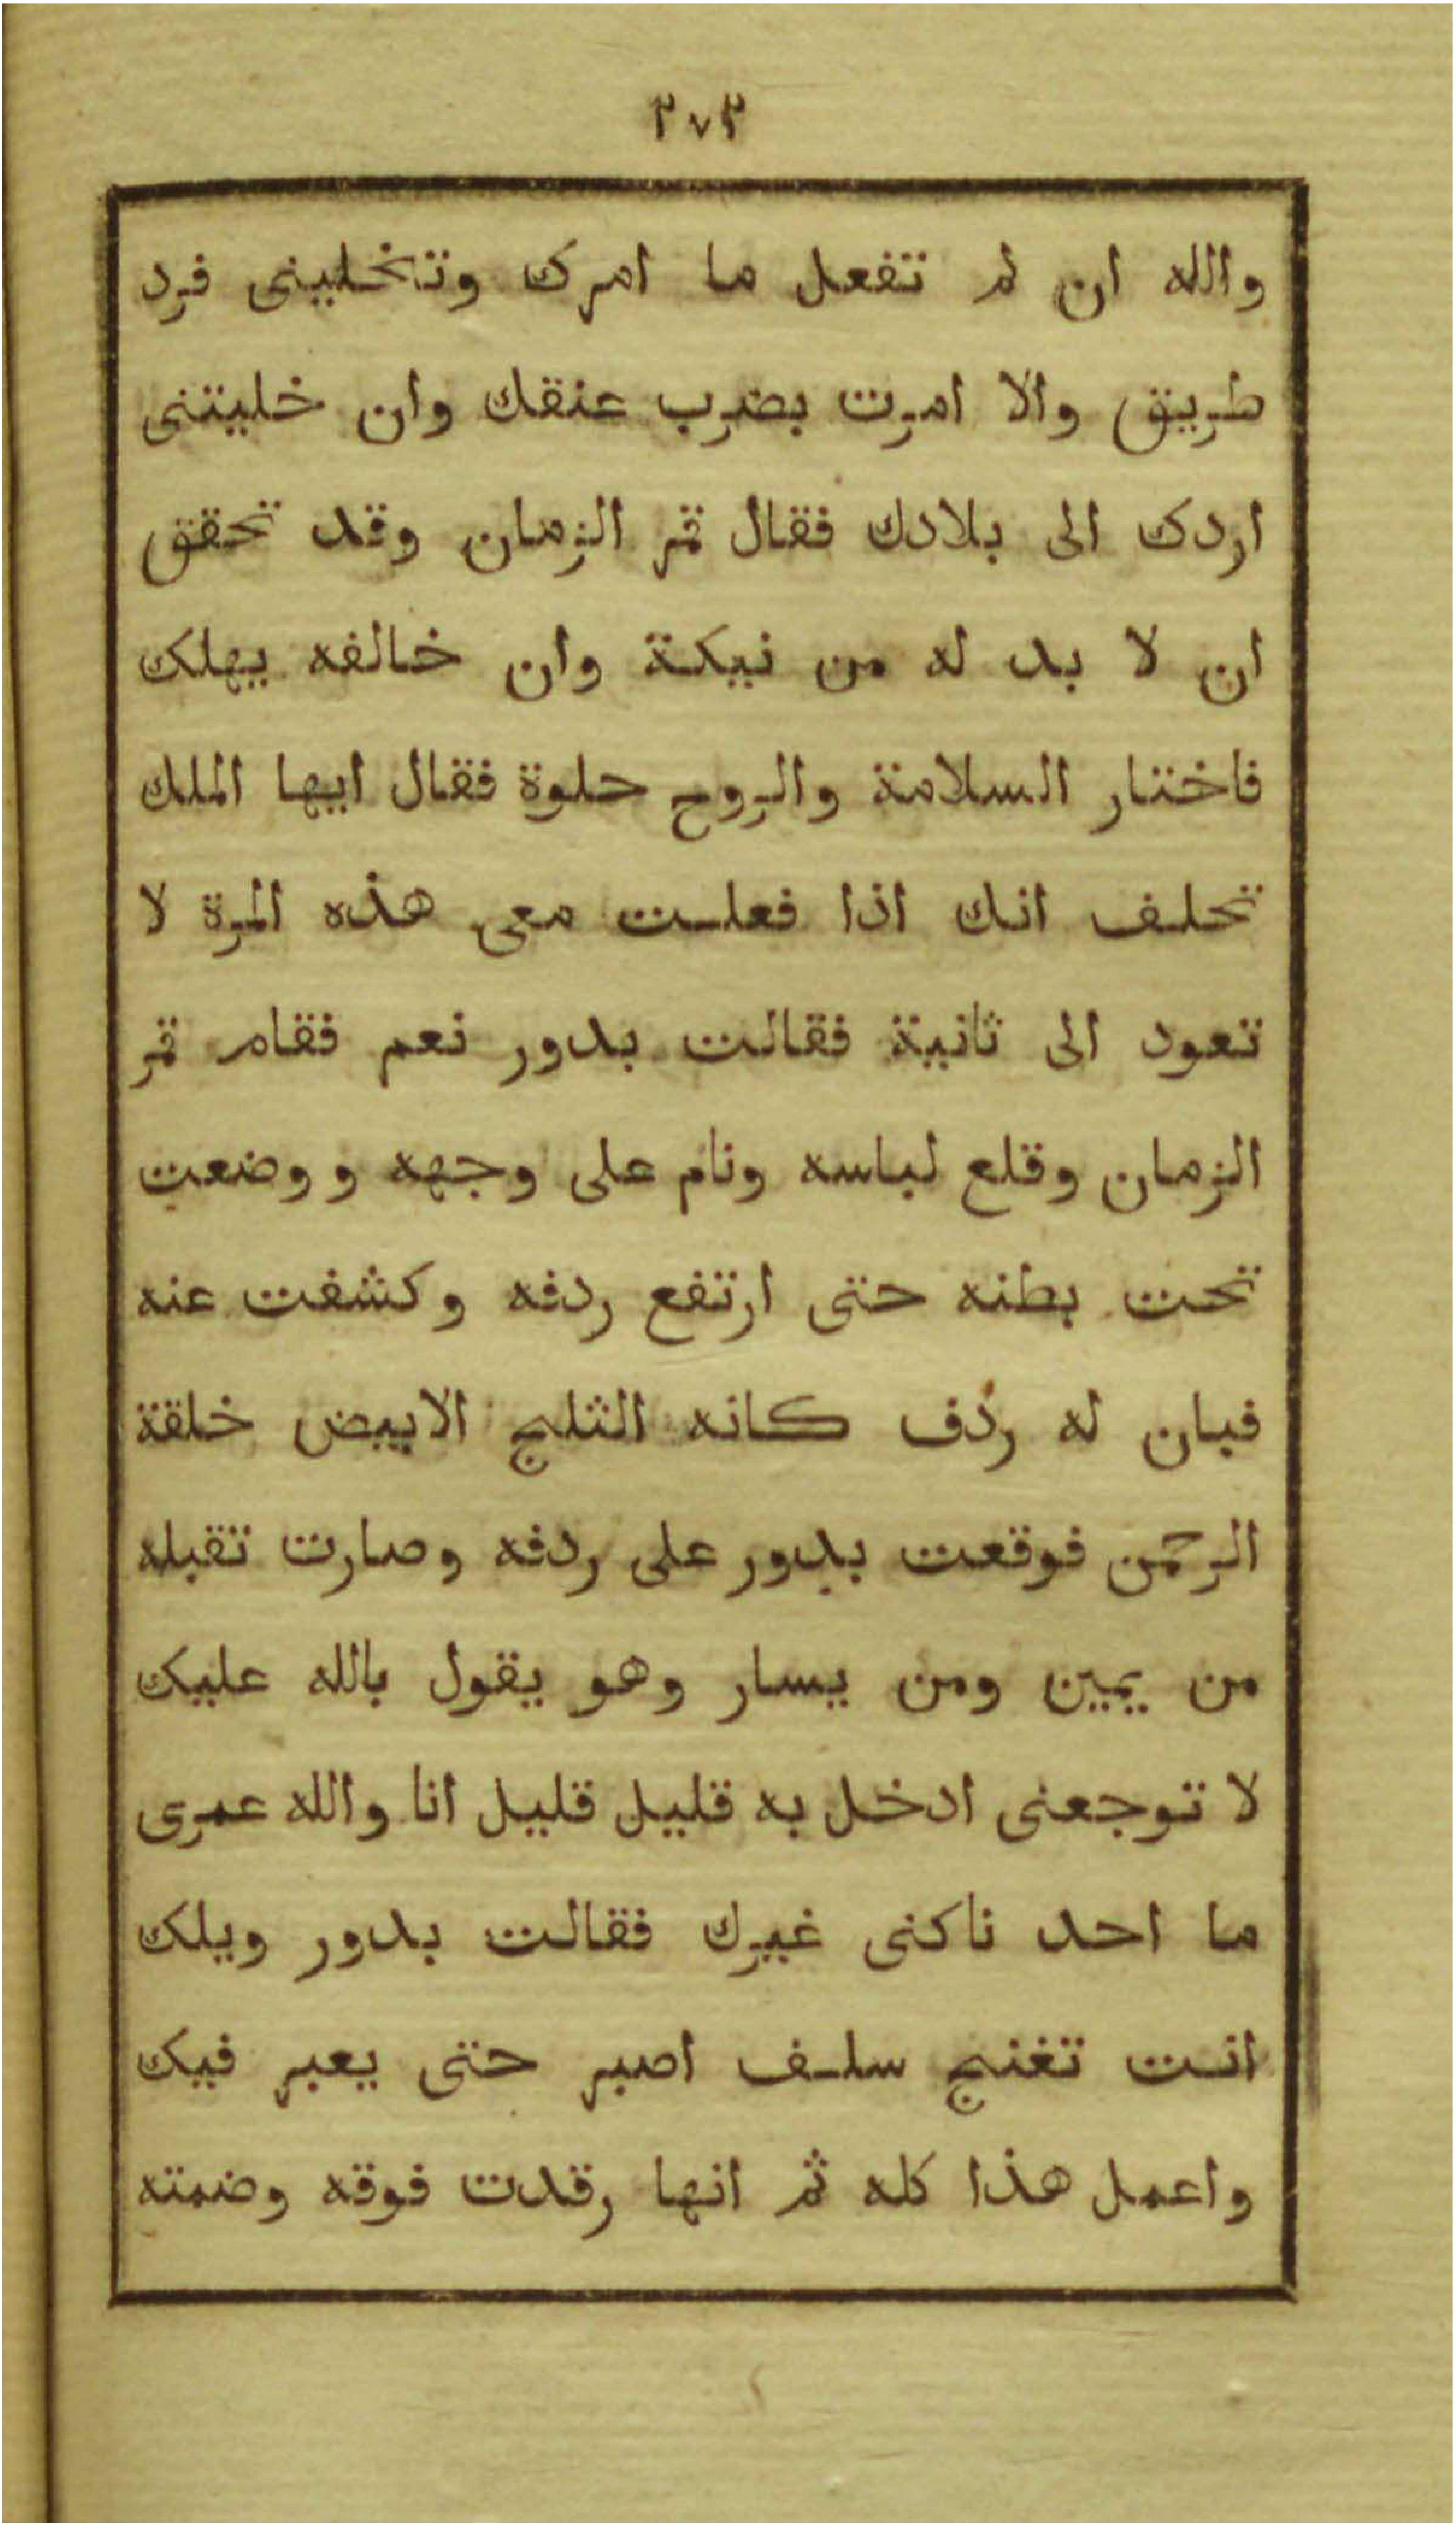 ٢٧٣
والله ان لم تفعل ما امرك وتخلينى فرد
طريق والا امرت بضرب عنقك وان خليتنى
اردك الى بلادك فقال قمر الزمان وقد تحقق
ان لا بد له من نيكة وان خالفه يهلك
فاختار السلامة والروح حلوة فقال ايها الملك
تحلف انك اذا فعلت معى هذه المرة لا
تعود الى ثانية فقالت بدور نعم فقام قمر
الزمان وقلع لباسه ونام على وجهه و وضعت
تحت بطنه حتى ارتفع ردفه وكشفت عنه
فبان له ردف كانه الثلج الابيض خلقة
الرحمن فوقعت بدور على ردفه وصارت تقبله
من يمين ومن يسار وهو يقول بالله عليك
لا توجعنى ادخل به قليل قليل انا والله عمرى
ما احد ناكنى غيرك فقالت بدور ويلك
انت تغنج سلف اصبر حتى يعبر فيك
واعمل هذا كله ثم انها رقدت فوقه وضمته